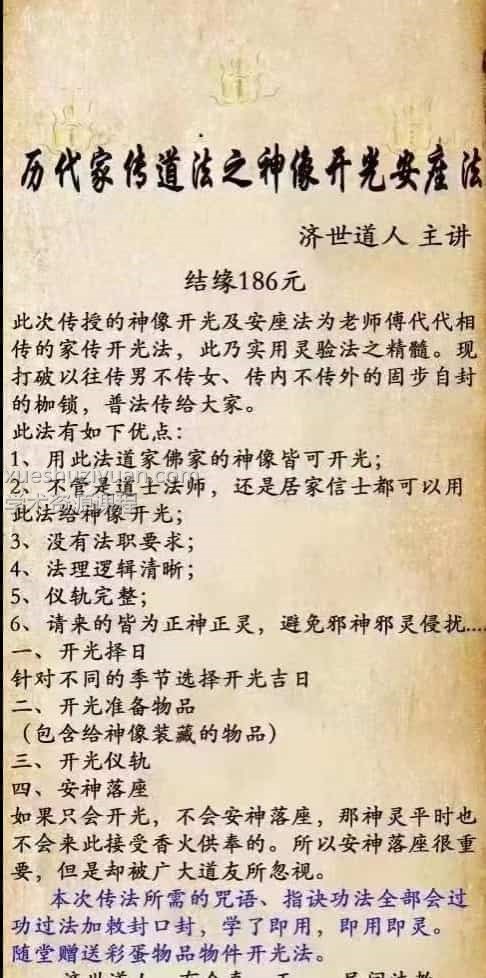 历代家传道法之神像开光安座法
济世道人 主讲
结缘186元
此次传授的神像开光及安座法为老师傅代代相
传的家传开光法，此乃实用灵验法之精髓。现
打破以往传男不传女、传内不传外的固步自封
的枷锁，普法传给大家。
此法有如下优点：
1、用此法道家佛家的神像皆可开光；
xueshuziyuan.com
2、不管是道士法师，还是居家信士都可以用
此法给神像开光；
3、没有法职要求；
4、法理逻辑清晰；
5、仪轨完整；
6、请来的皆为正神正灵，避免邪神邪灵侵扰....
一、开光择日
针对不同的季节选择开光吉日
二、开光准备物品
（包含给神像装藏的物品）
三、开光仪轨
四、安神落座
如果只会开光，不会安神落座，那神灵平时也
不会来此接受香火供奉的。所以安神落座很重
要，但是却被广大道友所忽视。
本次传法所需的咒语、指诀功法全部会过
功过法加敕封口封，学了即用，即用即灵。
随堂赠送彩蛋物品物件开光法。